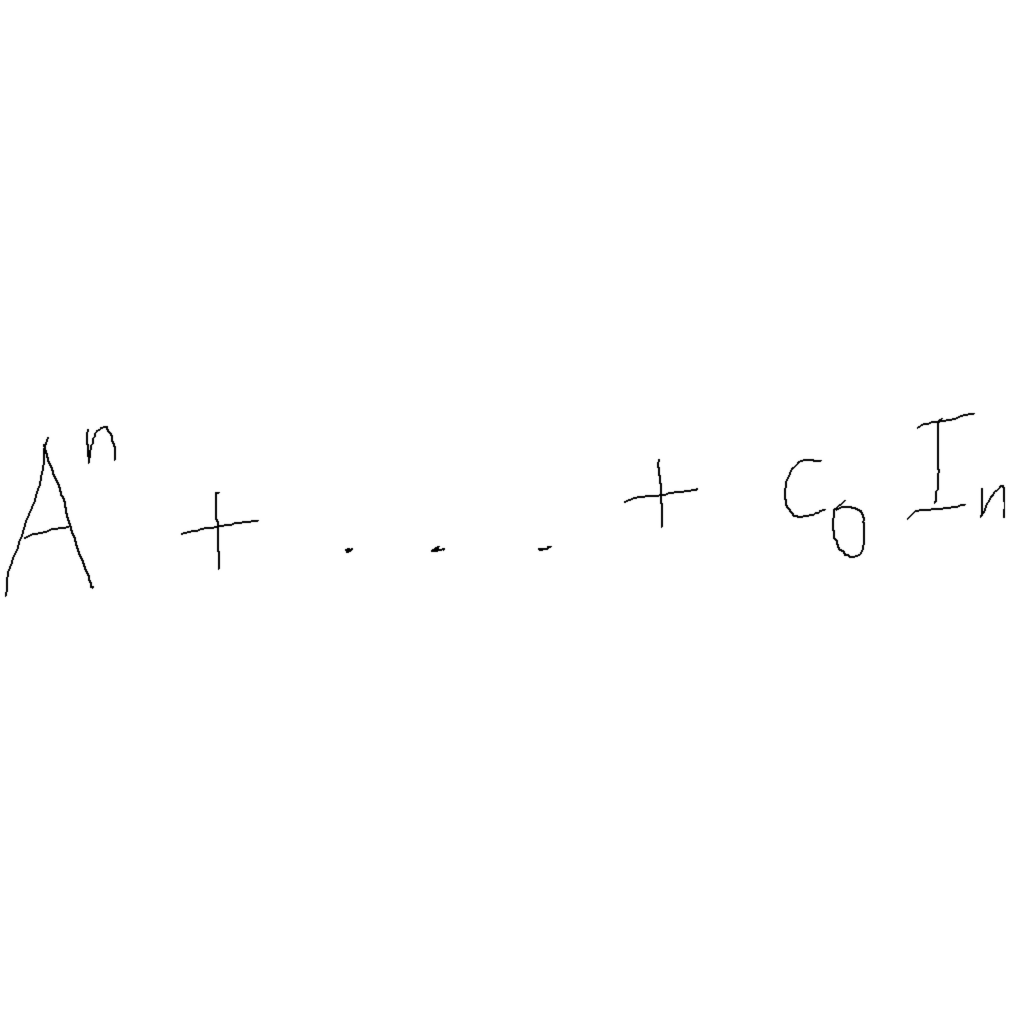 Aⁿ + . . . + c₀ Iₙ